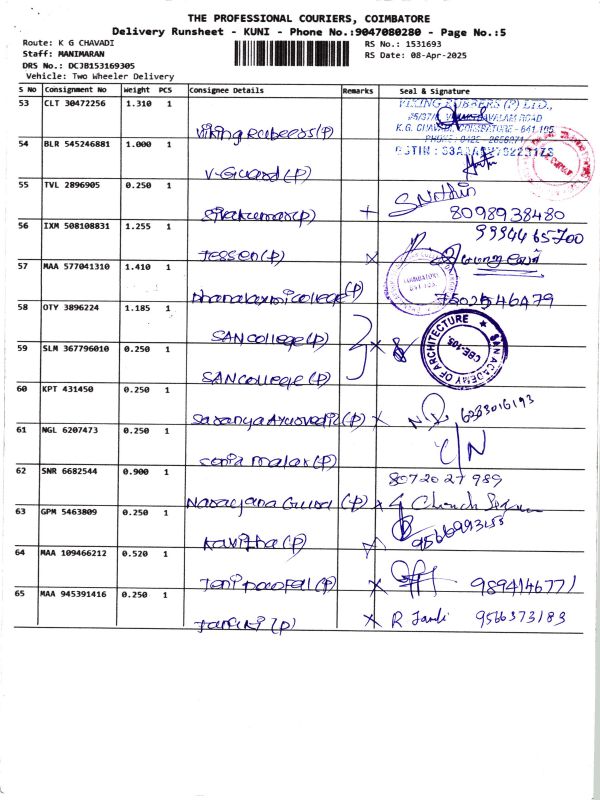 THE PROFESSIONAL COURIERS, COIMBATORE
Delivery Runsheet - KUNI - Phone No.:9047080280 - Page No.:5
Route: K G CHAVADI
RS No.: 1531693
Staff: MANIMARAN
RS Date: 08-Apr-2025
DRS No.: DCJB153169305
Vehicle: Two Wheeler Delivery
S No Consignment No Weight PCS Consignee Details Remarks Seal & Signature
53 CLT 30472256 1.310 1
VIKING RUBBERS (P) LTD.,
K.G. CHAVADI, COIMBATORE - 641 105.
Viking Rubbers (P)
54 BLR 545246881 1.000 1
V-Guard (P)
55 TVL 2896905 0.250 1
Sivakumar (P) + S Nithin
8098938480
56 IXM 508108831 1.255 1
9994465700
Jessen (P) x
57 MAA 577041310 1.410 1
Dhanalaxmi college (P)
7502546479
58 OTY 3896224 1.185 1
SAN College (P)
SAN ACADEMY OF ARCHITECTURE
CBE-105.
59 SLM 367796010 0.250 1
x
SAN College (P)
60 KPT 431450 0.250 1
Saranya Ayurvedic (P) x 6383016193
61 NGL 6207473 0.250 1
C/N
Malar (P)
62 SNR 6682544 0.900 1
8072027989
Narayana Guru (P) x
63 GPM 5463809 0.250 1
Kavitha (P) x
64 MAA 109466212 0.520 1
(P) x 9894146771
65 MAA 945391416 0.250 1
(P) x R 9566373183